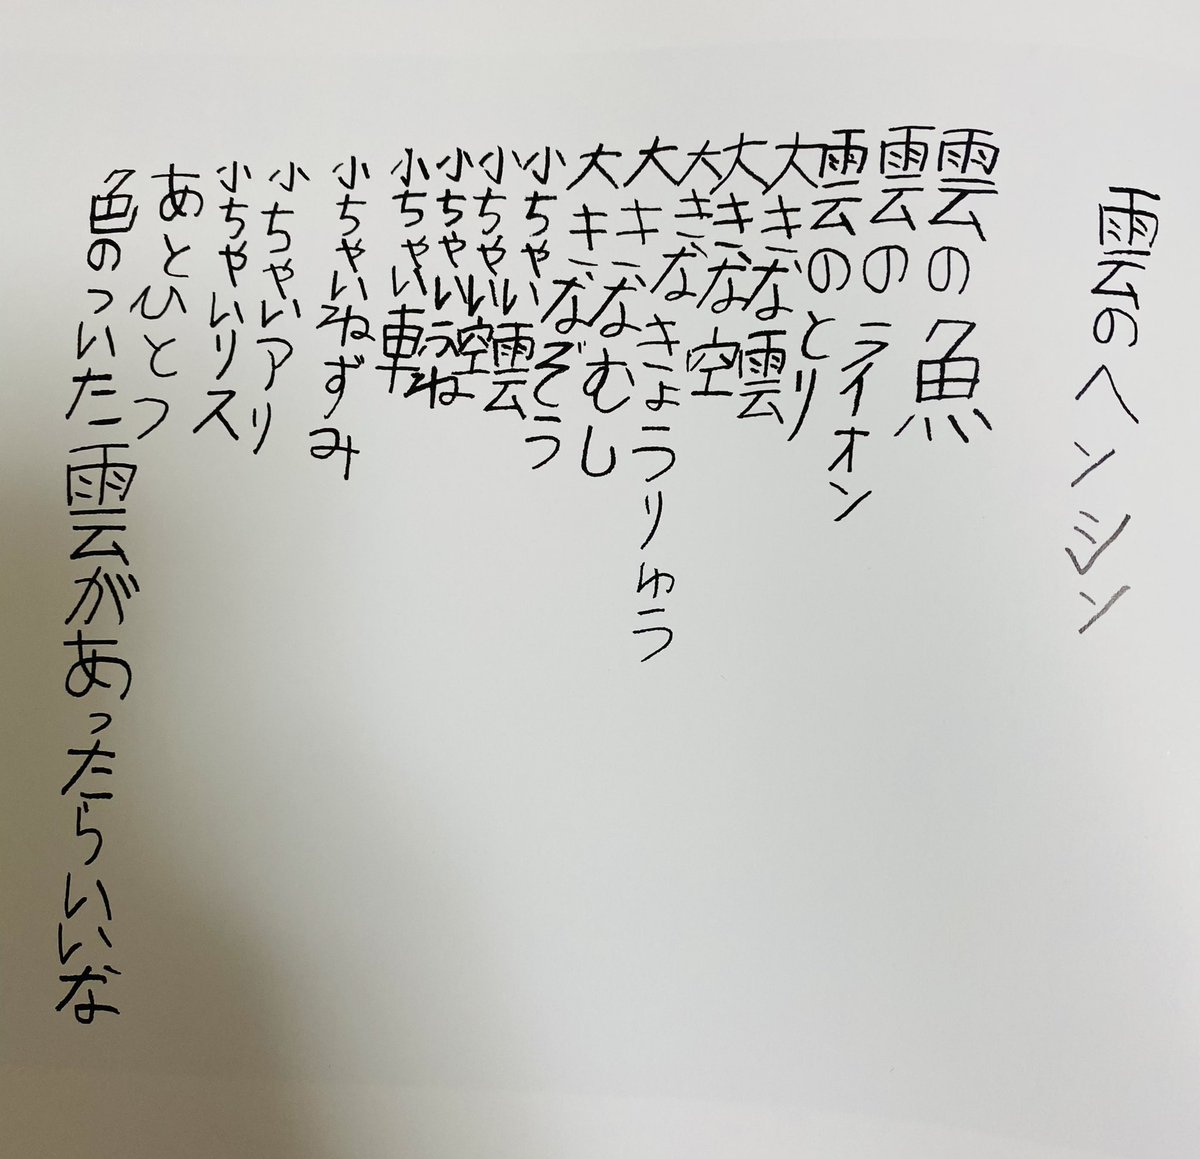 雲のヘンシン
雲の魚
雲のライオン
雲のとり
大きな雲
大きな空
大きなきょうりゅう
大きなむし
大きなぞう
小ちゃい雲
小ちゃい空
小ちゃいふね
小ちゃい車
小ちゃいねずみ
小ちゃいアリ
小ちゃいリス
あとひとつ
色のついた雲があったらいいな